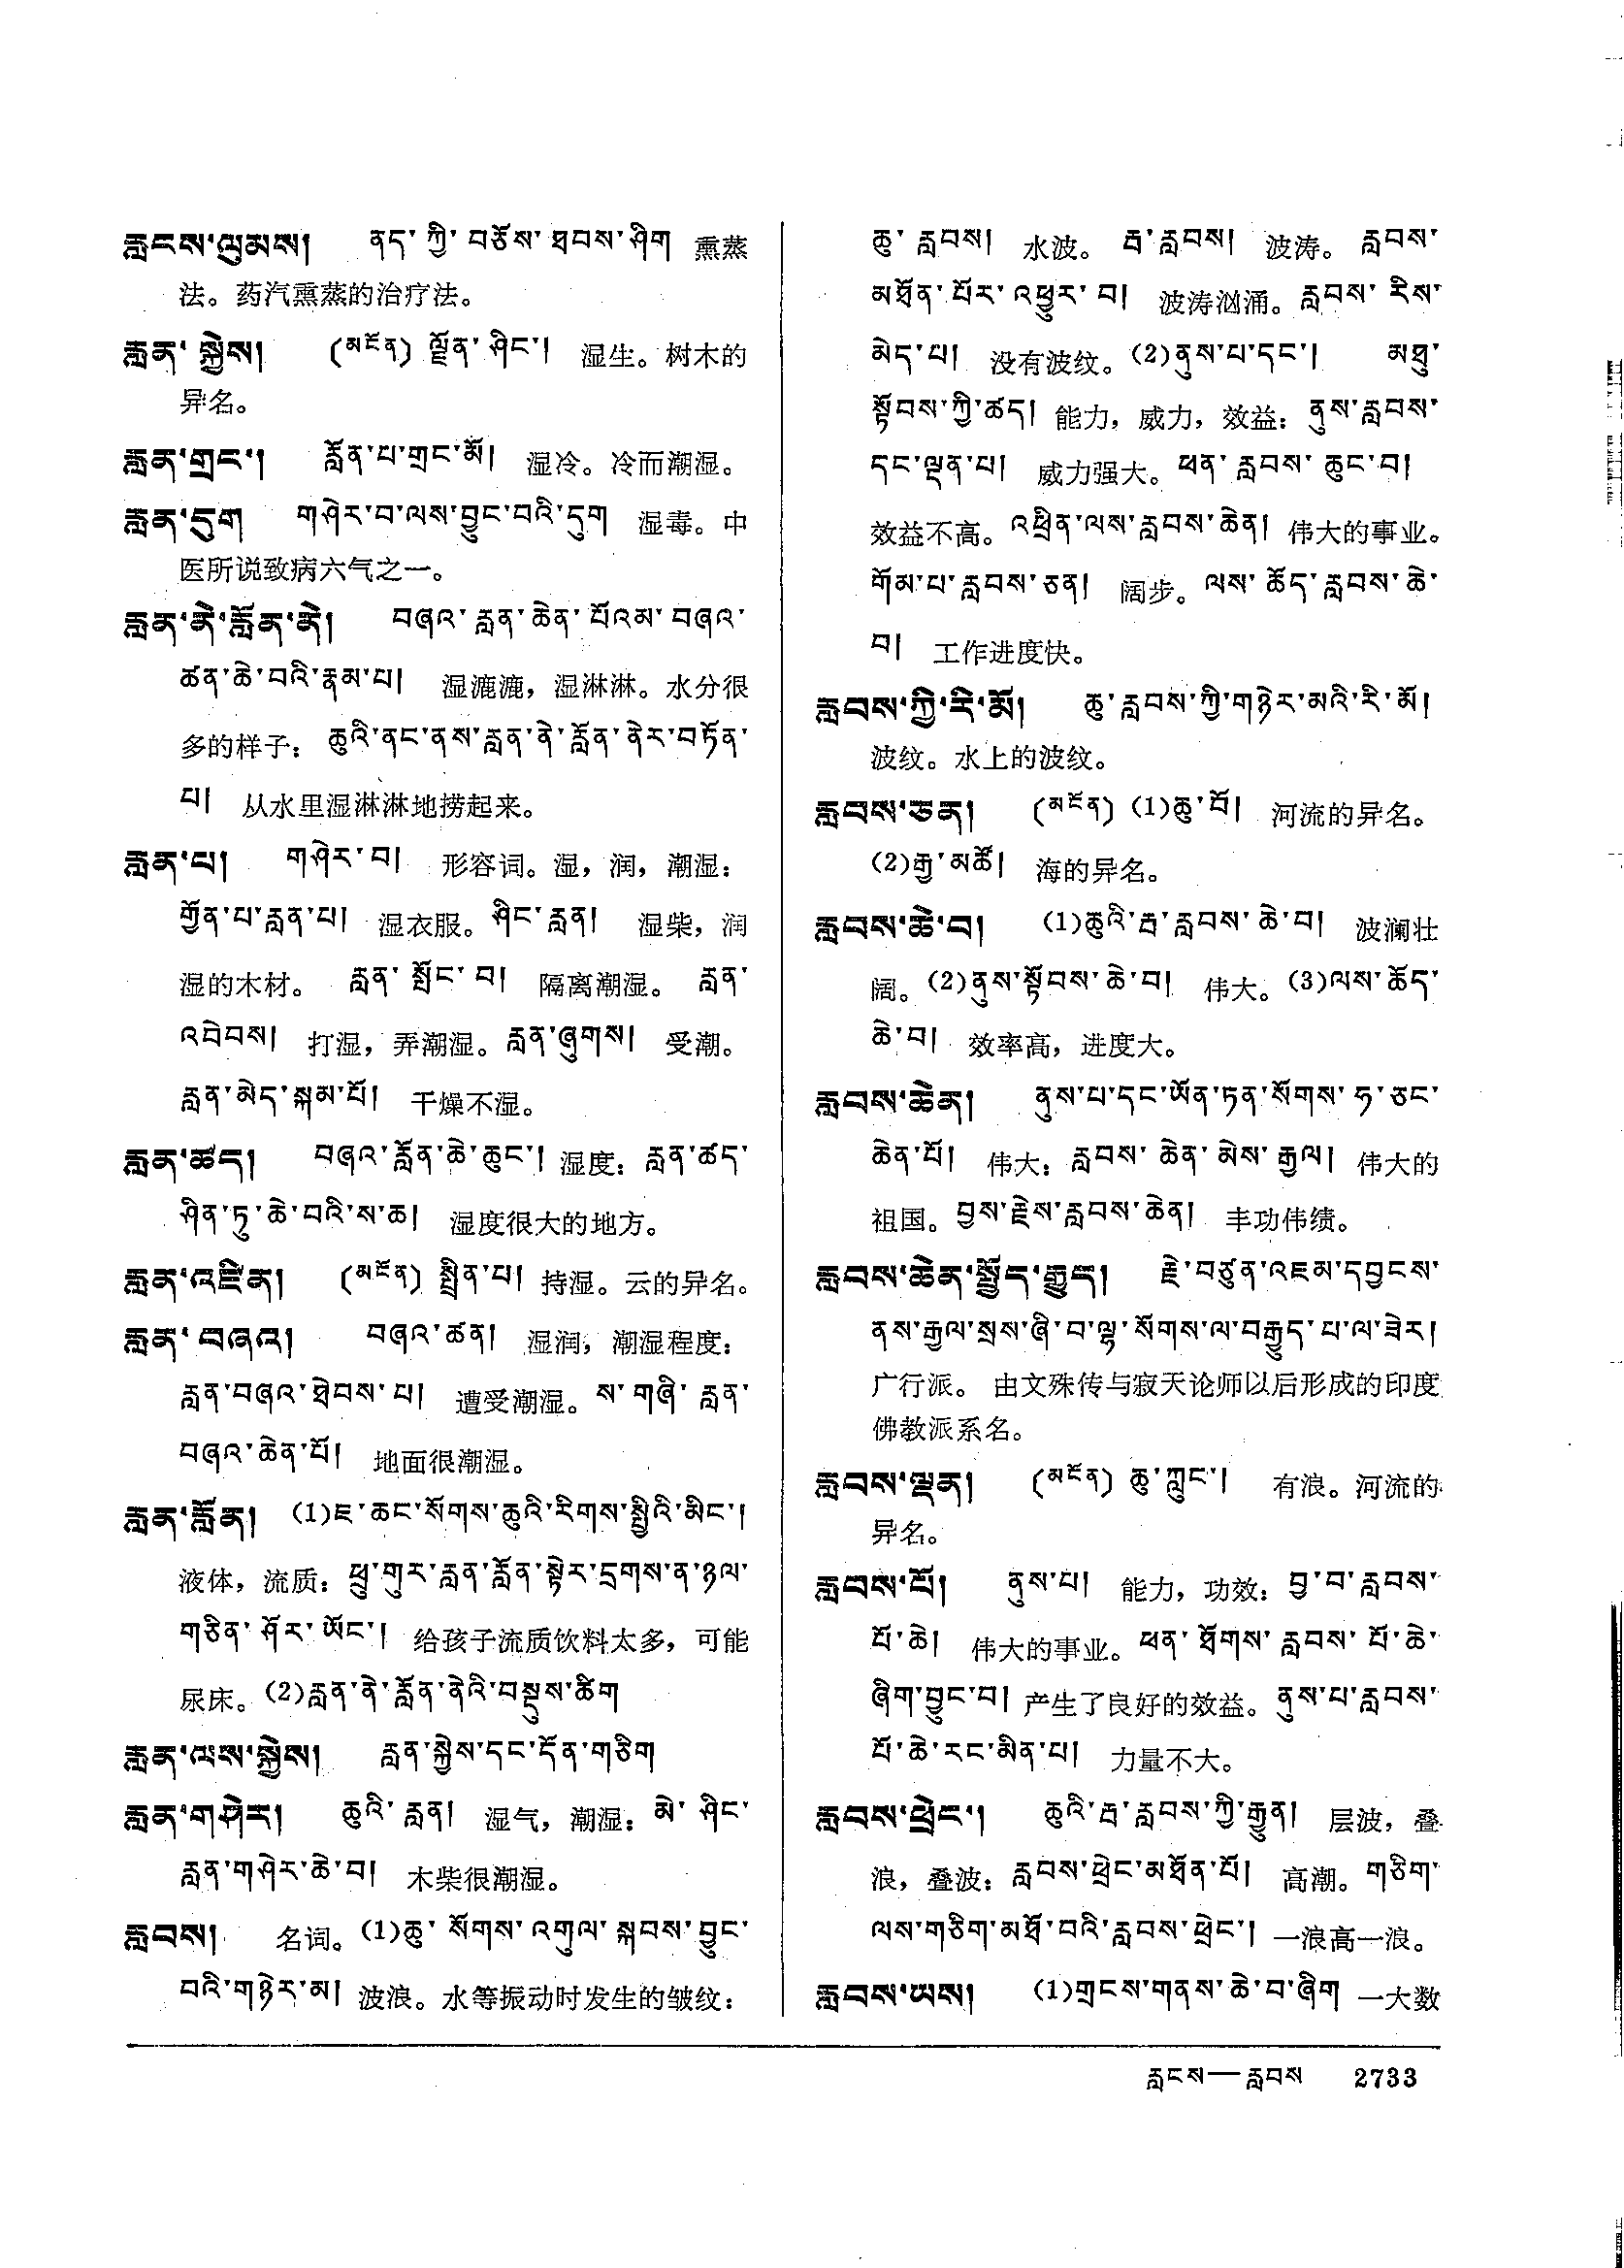 རླངས་ལུམས། ནད་ཀྱི་བཅོས་ཐབས་ཤིག 熏蒸
法。药汽熏蒸的治疗法。
རླན་སྐྱེས། (མངོན) ལྗོན་ཤིང་། 湿生。树木的
异名。
རླན་གྲང་། རློན་པ་གྲང་མོ། 湿冷。冷而潮湿。
རླན་དུག གཤེར་བ་ལས་བྱུང་བའི་དུག 湿毒。中
医所说致病六气之一。
རླན་ནེ་རློན་ནེ། བཞའ་རླན་ཆེན་པོའམ་བཞའ་
ཚན་ཆེ་བའི་རྣམ་པ། 湿漉漉，湿淋淋。水分很
多的样子：ཆུའི་ནང་ནས་རླན་ནེ་རློན་ནེར་བཏོན་
པ། 从水里湿淋淋地捞起来。
རླན་པ། གཤེར་བ། 形容词。湿，润，潮湿：
གྱོན་པ་རླན་པ། 湿衣服。ཤིང་རླན། 湿柴，润
湿的木材。 རླན་སྲོང་བ། 隔离潮湿。 རླན་
འབེབས། 打湿，弄潮湿。རླན་ཞུགས། 受潮。
རླན་མེད་སྐམ་པོ། 干燥不湿。
རླན་ཚད། བཞའ་རློན་ཆེ་ཆུང་། 湿度：རླན་ཚད་
ཤིན་ཏུ་ཆེ་བའི་ས་ཆ། 湿度很大的地方。
རླན་འཛིན། (མངོན) སྤྲིན་པ། 持湿。云的异名。
རླན་བཞའ། བཞའ་ཚན། 湿润，潮湿程度：
རླན་བཞའ་ཐེབས་པ། 遭受潮湿。ས་གཞི་རླན་
བཞའ་ཆེན་པོ། 地面很潮湿。
རླན་རློན། (1)ཇ་ཆང་སོགས་ཆུའི་རིགས་སྤྱིའི་མིང་།
液体，流质：ཕྲུ་གུར་རླན་རློན་སྟེར་དྲགས་ན་ཉལ་
གཅིན་ཤོར་ཡོང་། 给孩子流质饮料太多，可能
尿床。(2)རླན་ནེ་རློན་ནེའི་བསྡུས་ཚིག
རླན་ལས་སྐྱེས། རླན་སྐྱེས་དང་དོན་གཅིག
རླན་གཤེར། ཆུའི་རླན། 湿气，潮湿：མེ་ཤིང་
རླན་གཤེར་ཆེ་བ། 木柴很潮湿。
རླབས། 名词。(1)ཆུ་སོགས་འགུལ་སྐབས་བྱུང་
བའི་གཉེར་མ། 波浪。水等振动时发生的皱纹：
ཆུ་རླབས། 水波。 རྦ་རླབས། 波涛。 རླབས་
མཐོན་པོར་འཕྱུར་བ། 波涛汹涌。རླབས་རིས་
མེད་པ། 没有波纹。(2)ནུས་པ་དང་། མཐུ་
སྟོབས་ཀྱི་ཚད། 能力，威力，效益：ནུས་རླབས་
དང་ལྡན་པ། 威力强大。ཕན་རླབས་ཆུང་བ།
效益不高。འཕྲིན་ལས་རླབས་ཆེན། 伟大的事业。
གོམ་པ་རླབས་ཅན། 阔步。ལས་ཚོད་རླབས་ཆེ་
བ། 工作进度快。
རླབས་ཀྱི་རི་མོ། ཆུ་རླབས་ཀྱི་གཉེར་མའི་རི་མོ།
波纹。水上的波纹。
རླབས་ཅན། (མངོན) (1)ཆུ་བོ། 河流的异名。
(2)རྒྱ་མཚོ། 海的异名。
རླབས་ཆེ་བ། (1)ཆུའི་རྦ་རླབས་ཆེ་བ། 波澜壮
阔。(2)ནུས་སྟོབས་ཆེ་བ། 伟大。(3)ལས་ཚོད་
ཆེ་བ། 效率高，进度大。
རླབས་ཆེན། ནུས་པ་དང་ཡོན་ཏན་སོགས་ཧ་ཅང་
ཆེན་པོ། 伟大：རླབས་ཆེན་མེས་རྒྱལ། 伟大的
祖国。བྱས་རྗེས་རླབས་ཆེན། 丰功伟绩。
རླབས་ཆེན་སྤྱོད་རྒྱུད། རྗེ་བཙུན་འཇམ་དབྱངས་
ནས་རྒྱལ་སྲས་ཞི་བ་ལྷ་སོགས་ལ་བརྒྱུད་པ་ལ་ཟེར།
广行派。 由文殊传与寂天论师以后形成的印度
佛教派系名。
རླབས་ལྡན། (མངོན) ཆུ་ཀླུང་། 有浪。河流的
异名。
རླབས་པོ། ནུས་པ། 能力，功效：བྱ་བ་རླབས་
པོ་ཆེ། 伟大的事业。ཕན་ཐོགས་རླབས་པོ་ཆེ་
ཞིག་བྱུང་བ། 产生了良好的效益。ནུས་པ་རླབས་
པོ་ཆེ་རང་མིན་པ། 力量不大。
རླབས་ཕྲེང་། ཆུའི་རྦ་རླབས་ཀྱི་རྒྱུན། 层波，叠
浪，叠波：རླབས་ཕྲེང་མཐོན་པོ། 高潮。གཅིག་
ལས་གཅིག་མཐོ་བའི་རླབས་ཕྲེང་། 一浪高一浪。
རླབས་ཡས། (1)གྲངས་གནས་ཆེ་བ་ཞིག 一大数
རླངས—རླབས 2733